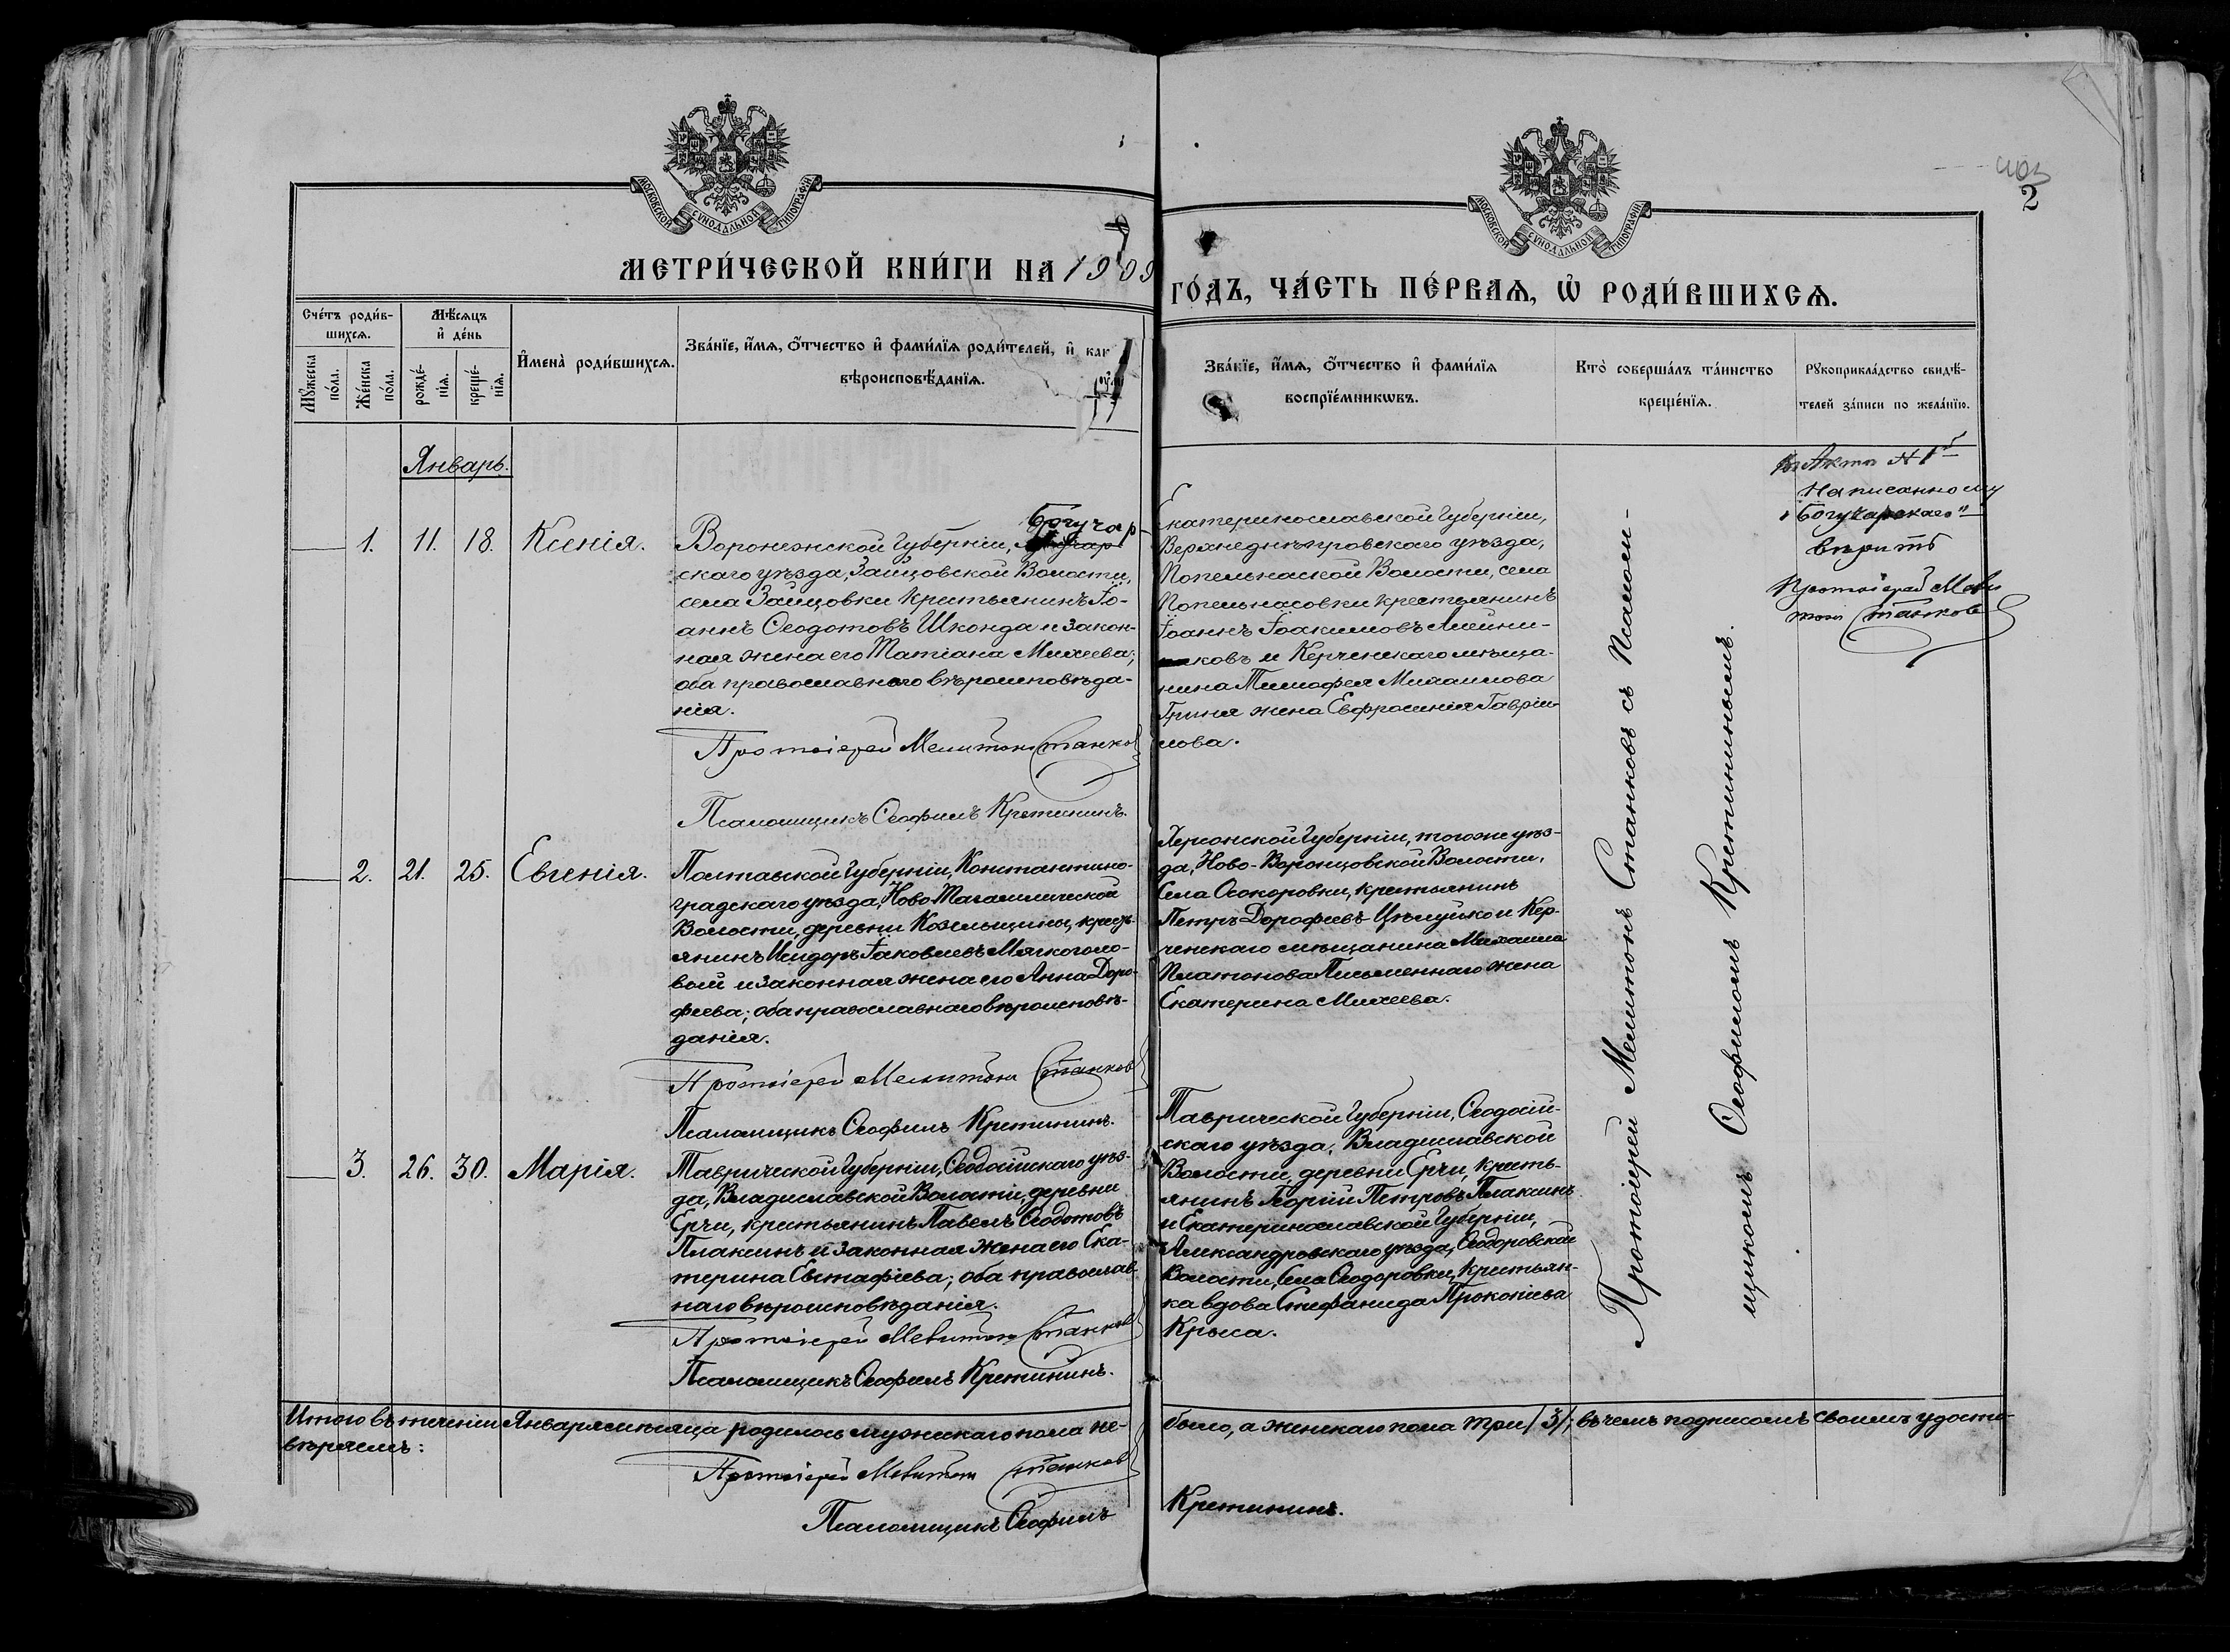 403
2
МОСКОВСКОЙ СѴНОДАЛЬНОЙ ТИПОГРАФІИ
МОСКОВСКОЙ СѴНОДАЛЬНОЙ ТИПОГРАФІИ
МЕТРИ́ЧЕСКОЙ КНИ́ГИ НА 1909
ГО́ДЪ, ЧА́СТЬ ПЕ́РВАѦ, Ѡ҆ РОДИ́ВШИХСѦ.
Сче́тъ роди́в-
шихсѧ.
Мꙋ́жеска
по́ла.
Же́нска
по́ла.
Мѣ́сѧцъ
и҆ де́нь
рожде́-
нїѧ.
креще́-
нїѧ.
И҆мена̀ роди́вшихсѧ.
Зва́нїе, и҆́мѧ, ѻ҆́тчество и҆ фами́лїѧ роди́телей, и҆ как
вѣроисповѣ́данїѧ.
Зва́нїе, и҆́мѧ, ѻ҆́тчество и҆ фами́лїѧ
воспрїе́мникѡвъ.
Кто̀ соверша́лъ та́инство
креще́нїѧ.
Рꙋкоприкла́дство свидѣ́-
телей за́писи по жела́нїю.
Январь.
1. 11. 18. Ксенія.
Богучар-
Воронежской Губерніи,
скаго уѣзда, Зайцовской Волости,
села Зайцовки крестьянинъ Іо-
аннъ Ѳеодотовъ Шконда и закон-
ная жена его Татіана Михеева;
оба православнаго вѣроисповѣда-
нія.
Протоіерей Мелитонъ Станковъ
Псаломщикъ Ѳеофилъ Кретининъ.
Екатеринославской Губерніи,
Верхнеднѣпровскаго уѣзда,
Попельнаской Волости, села
Попельнасовки крестьянинъ
Іоаннъ Іоакимовъ Алейни-
ковъ и Керченскаго мѣща-
нина Тимофея Михаилова
Гриня жена Евфросинія Гаврии-
лова.
Акта № 1й
Написанному
"Богучарскаго"
вѣрить
Протоіерей Мели
тонъ Станковъ
2. 21. 25. Евгенія.
Полтавской Губерніи, Константино-
градскаго уѣзда, Ново-Тагамлической
Волости, деревни Козельщины, кресть-
янинъ Исидоръ Іаковлевъ Мякоголо-
вый и законная жена его Анна Доро-
феева; оба православнаго вѣроисповѣ-
данія.
Протоіерей Мелитонъ Станковъ
Псаломщикъ Ѳеофилъ Кретининъ.
Херсонской Губерніи, тогоже уѣз-
да, Ново-Воронцовской Волости,
Села Осокоровки, крестьянинъ
Петръ Дорофеевъ Цѣлуйко и Кер-
ченскаго мѣщанина Михаила
Платонова Письменнаго жена
Екатерина Михеева.
3. 26. 30. Марія.
Таврической Губерніи, Ѳеодосійскаго уѣз-
да, Владиславской Волости, деревни
Ерчи, крестьянинъ Павелъ Ѳеодотовъ
Плаксинъ и законная жена его Ека-
терина Евстафіева; оба православ-
наго вѣроисповѣданія.
Протоіерей Мелитонъ Станковъ
Псаломщикъ Ѳеофилъ Кретининъ.
Таврической Губерніи, Ѳеодосій-
скаго уѣзда, Владиславской
Волости, деревни Ерчи, кресть-
янинъ Георгій Петровъ Плаксинъ
и Екатеринославской Губерніи,
Александровскаго уѣзда, Ѳеодоровской
Волости, Села Ѳеодоровки, крестьян-
ка вдова Стефанида Прокопіева
Крыса.
Протоіерей Мелитонъ Станковъ съ Псалом-
щикомъ Ѳеофиломъ Кретининымъ.
Итого въ теченіи Января мѣсяца родилось мужескаго пола не-
было, а женскаго пола три /3/; въ чемъ подписомъ своимъ удосто-
вѣряемъ:
Протоіерей Мелитонъ Станковъ
Псаломщикъ Ѳеофилъ
Кретининъ.